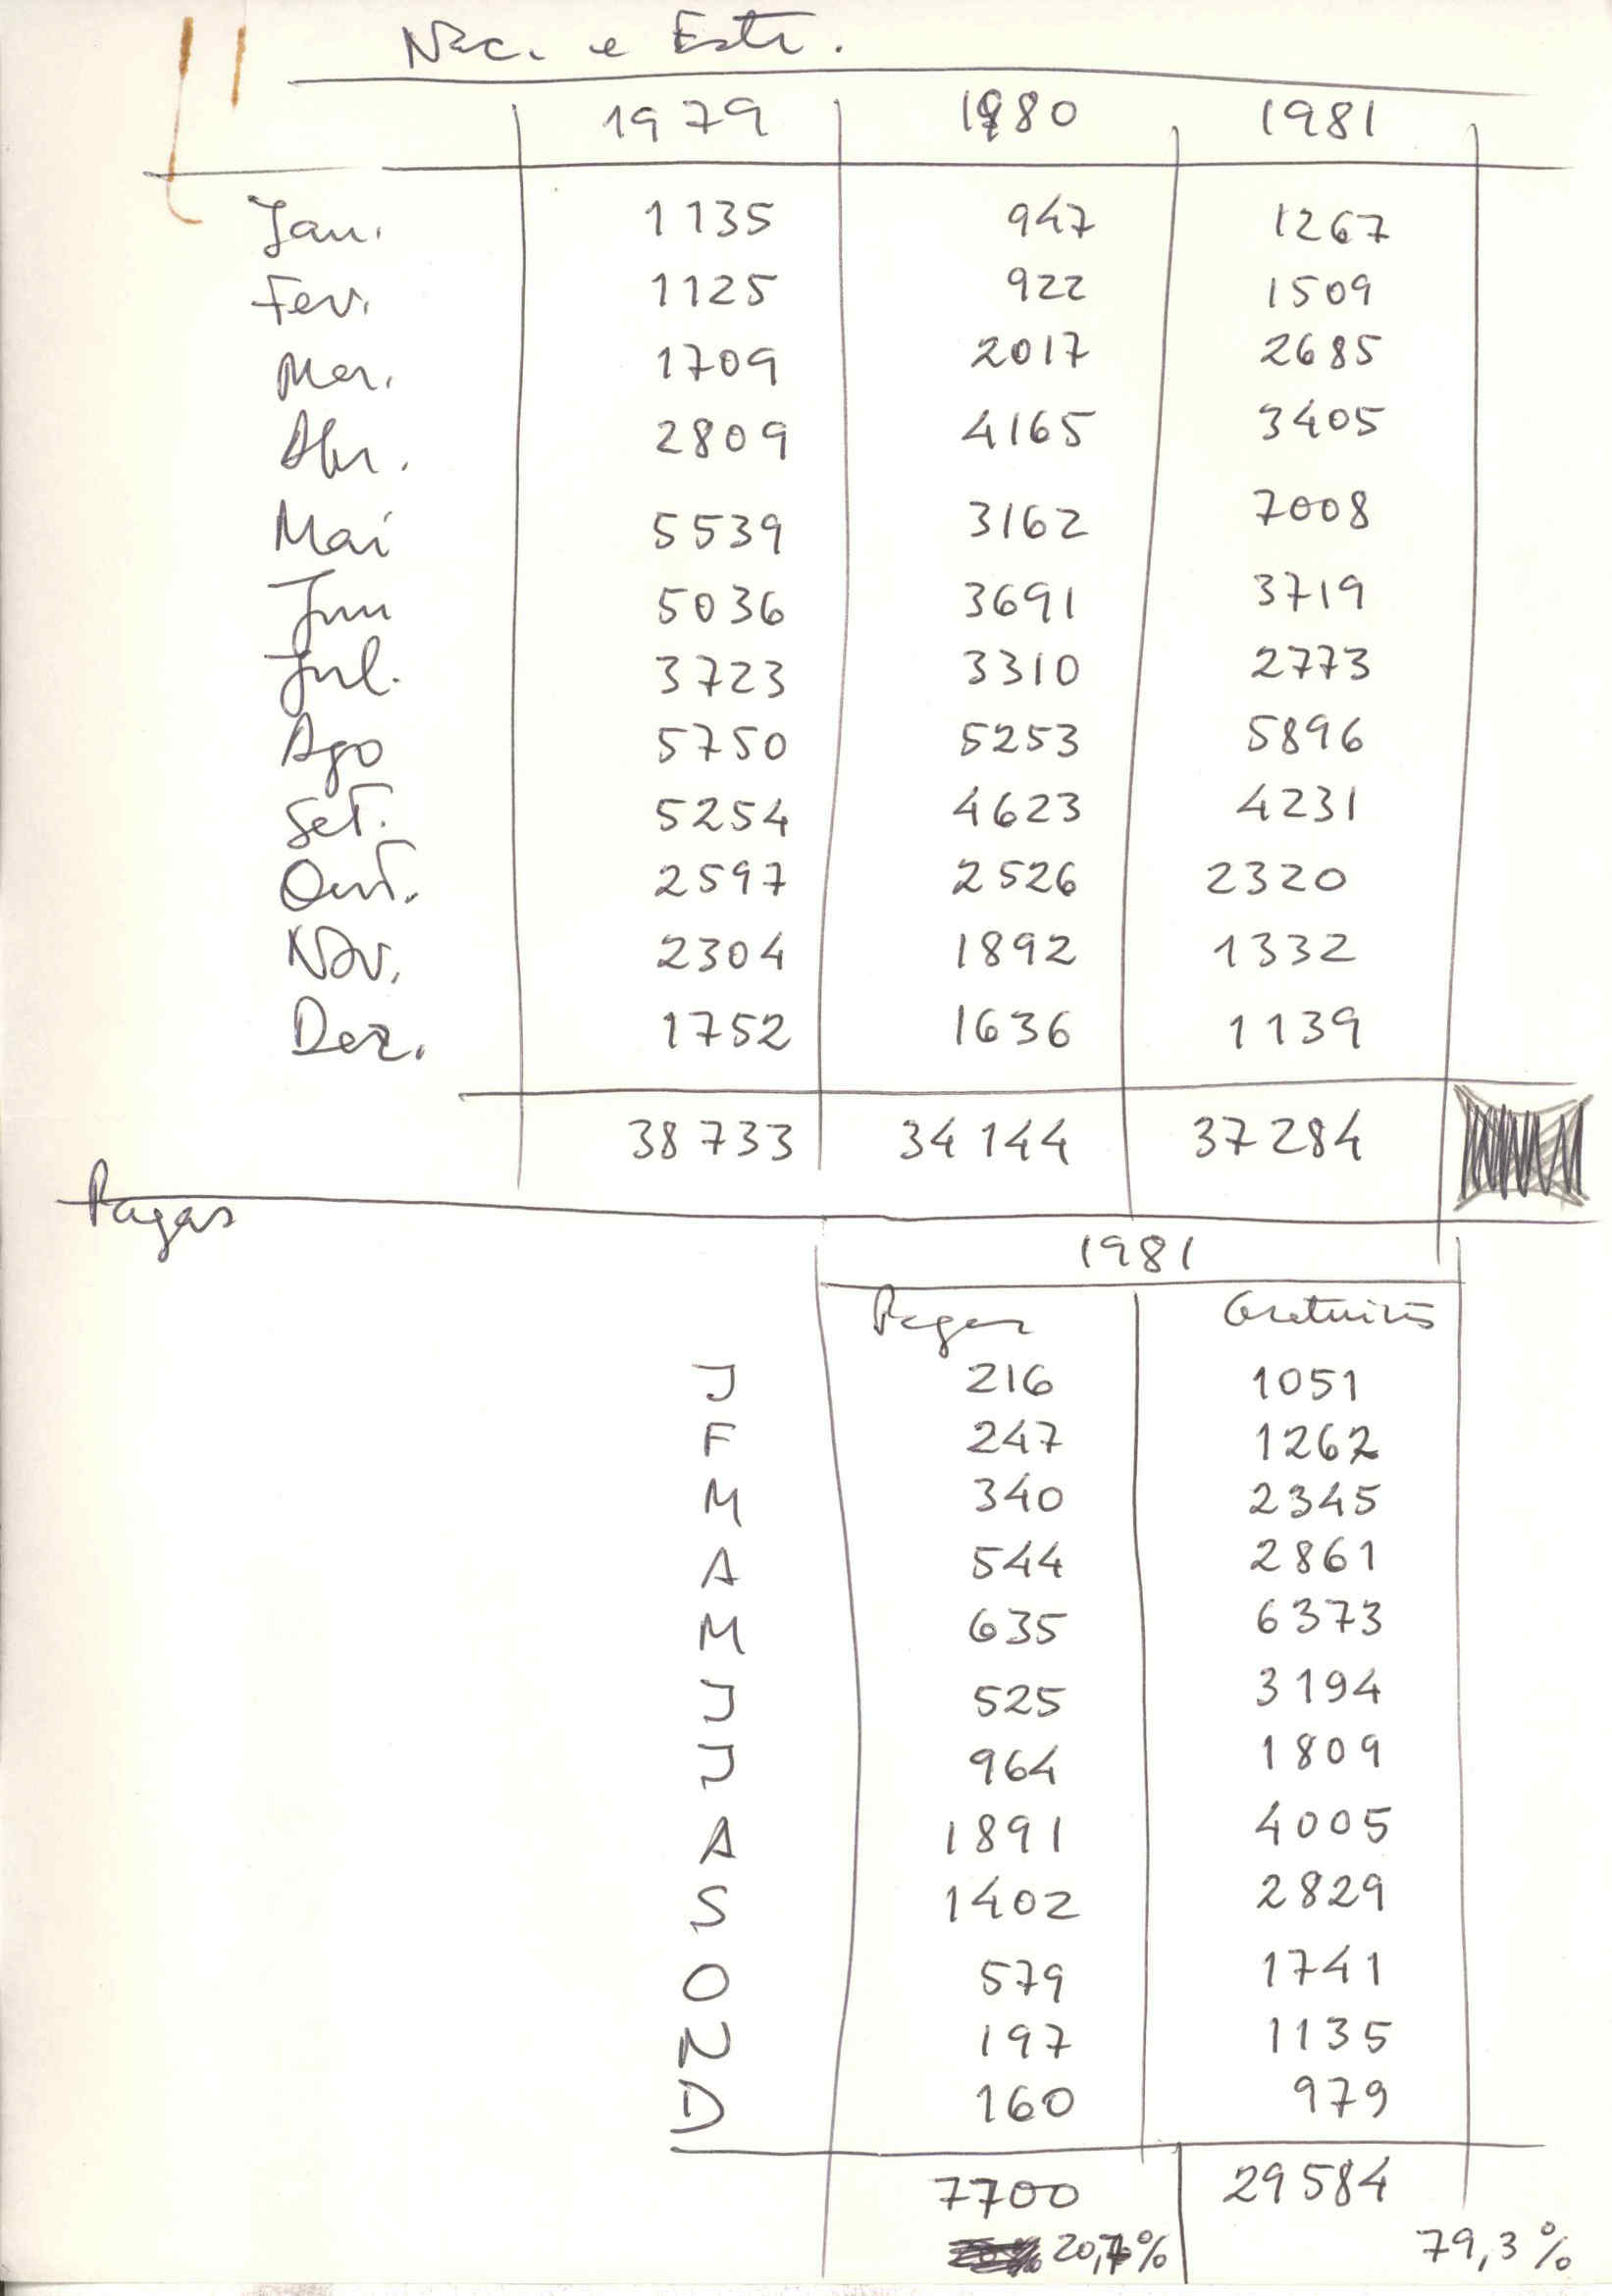 Nac. e Estr.
1979 1980 1981
Jan. 1135 947 1267
Fev. 1125 922 1509
Mar. 1709 2017 2685
Abr. 2809 4165 3405
Mai 5539 3162 7008
Jun 5036 3691 3719
Jul. 3723 3310 2773
Ago 5750 5253 5896
Set. 5254 4623 4231
Out. 2597 2526 2320
Nov. 2304 1892 1332
Dez. 1752 1636 1139
38733 34144 37284
Pagas
1981
Pagas Gratuitas
J 216 1051
F 247 1262
M 340 2345
A 544 2861
M 635 6373
J 525 3194
J 964 1809
A 1891 4005
S 1402 2829
O 579 1741
N 197 1135
D 160 979
7700 29584
20,7% 79,3%